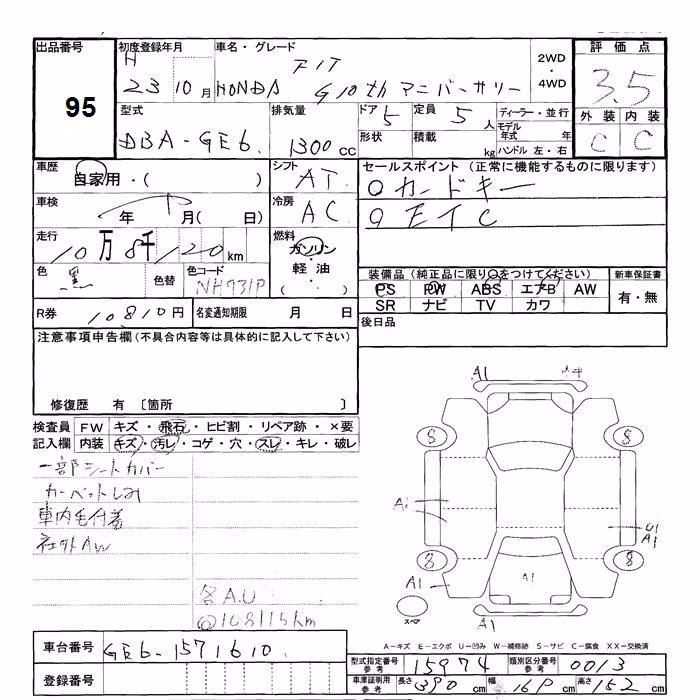 出品番号
95
初度登録年月
H
23 10月
車名・グレード
FIT
HONDA G10th アニバーサリー
2WD
・
4WD
評価点
3.5
型式
DBA-GE6
排気量
1300cc
ドア 5
定員 5人
形状
積載 kg
ディーラー・並行
モデル年式 年
ハンドル 左・右
外装 内装
C C
車歴
自家用・( )
シフト
AT
セールスポイント (正常に機能するものに限ります)
カードキー
ETC
車検
年 月( 日)
冷房
AC
走行
10万8千120km
燃料
ガソリン
・
軽油
( )
色
黒
色替
色コード
NH731P
装備品 (純正品に限り○をつけてください)
PS PW ABS エアB AW
SR ナビ TV カワ
新車保証書
有・無
R券
10810円
名変通知期限 月 日
後日品
注意事項申告欄(不具合内容等は具体的に記入して下さい)
修復歴 有 〔箇所 〕
検査員
記入欄
FW キズ・飛石・ヒビ割・リペア跡・×要
内装 キズ・汚レ・コゲ・穴・スレ・キレ・破レ
一部シートカバー
カーペットしみ
車内毛付着
社外AW
A.U
@108115km
A1
8
8
A1
U1
A1
8
8
A1
A1
A1
スペア
A-キズ E-エクボ U-凹み W-補修跡 S-サビ C-腐食 XX-交換済
車台番号
GE6-1571610
登録番号
型式指定番号
参考
15974
類別区分番号
参考
0013
車庫証明用
参考
長さ 390cm
幅 169cm
高さ 152cm